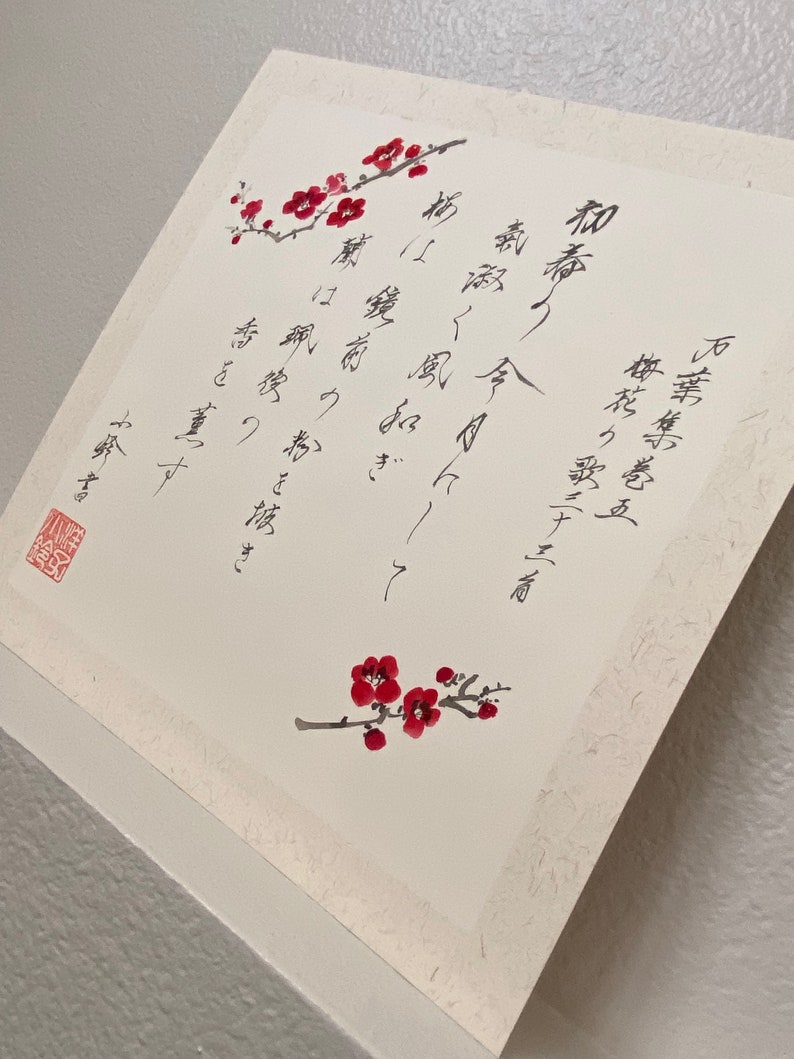 万葉集巻五
梅花の歌三十二首
初春の令月にして
氣淑く風和ぎ
梅は鏡前の粉を披き
蘭は珮後の
香を薫す
小鈴書